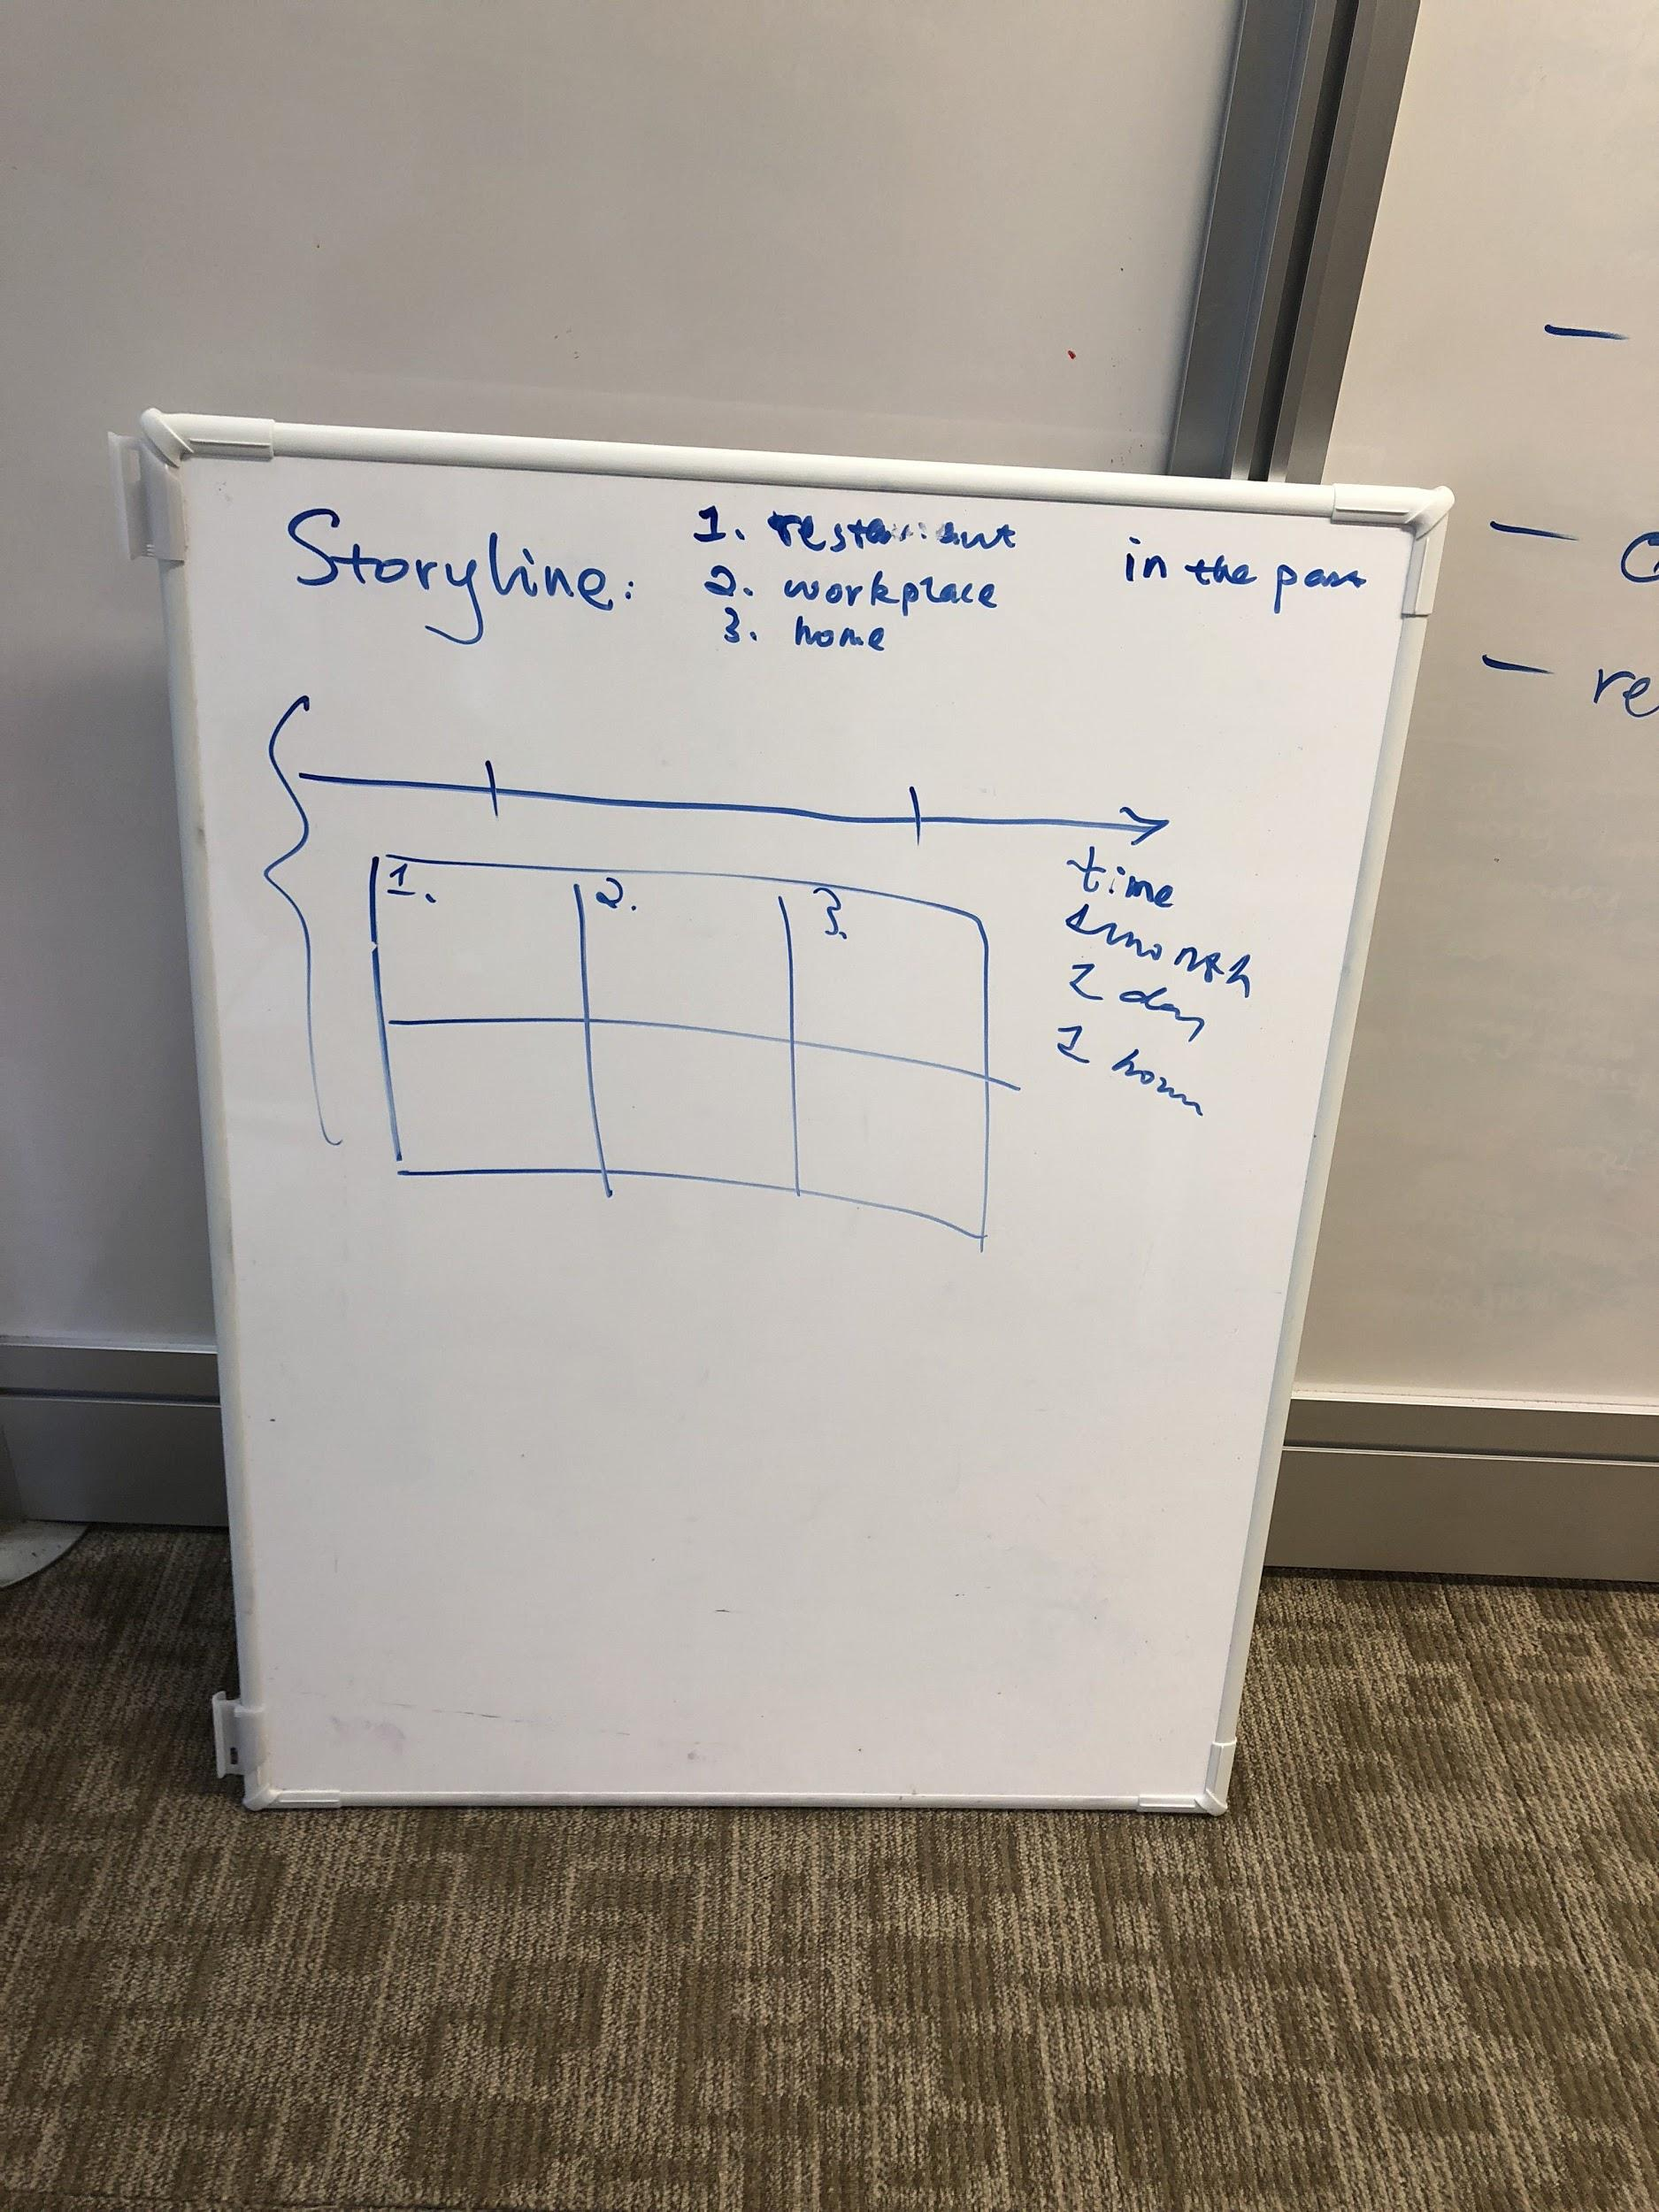 Storyline:
1. restaurant
2. workplace
3. home
in the past
1.
2.
3.
time
1 month
1 day
1 hour
—
—
— re